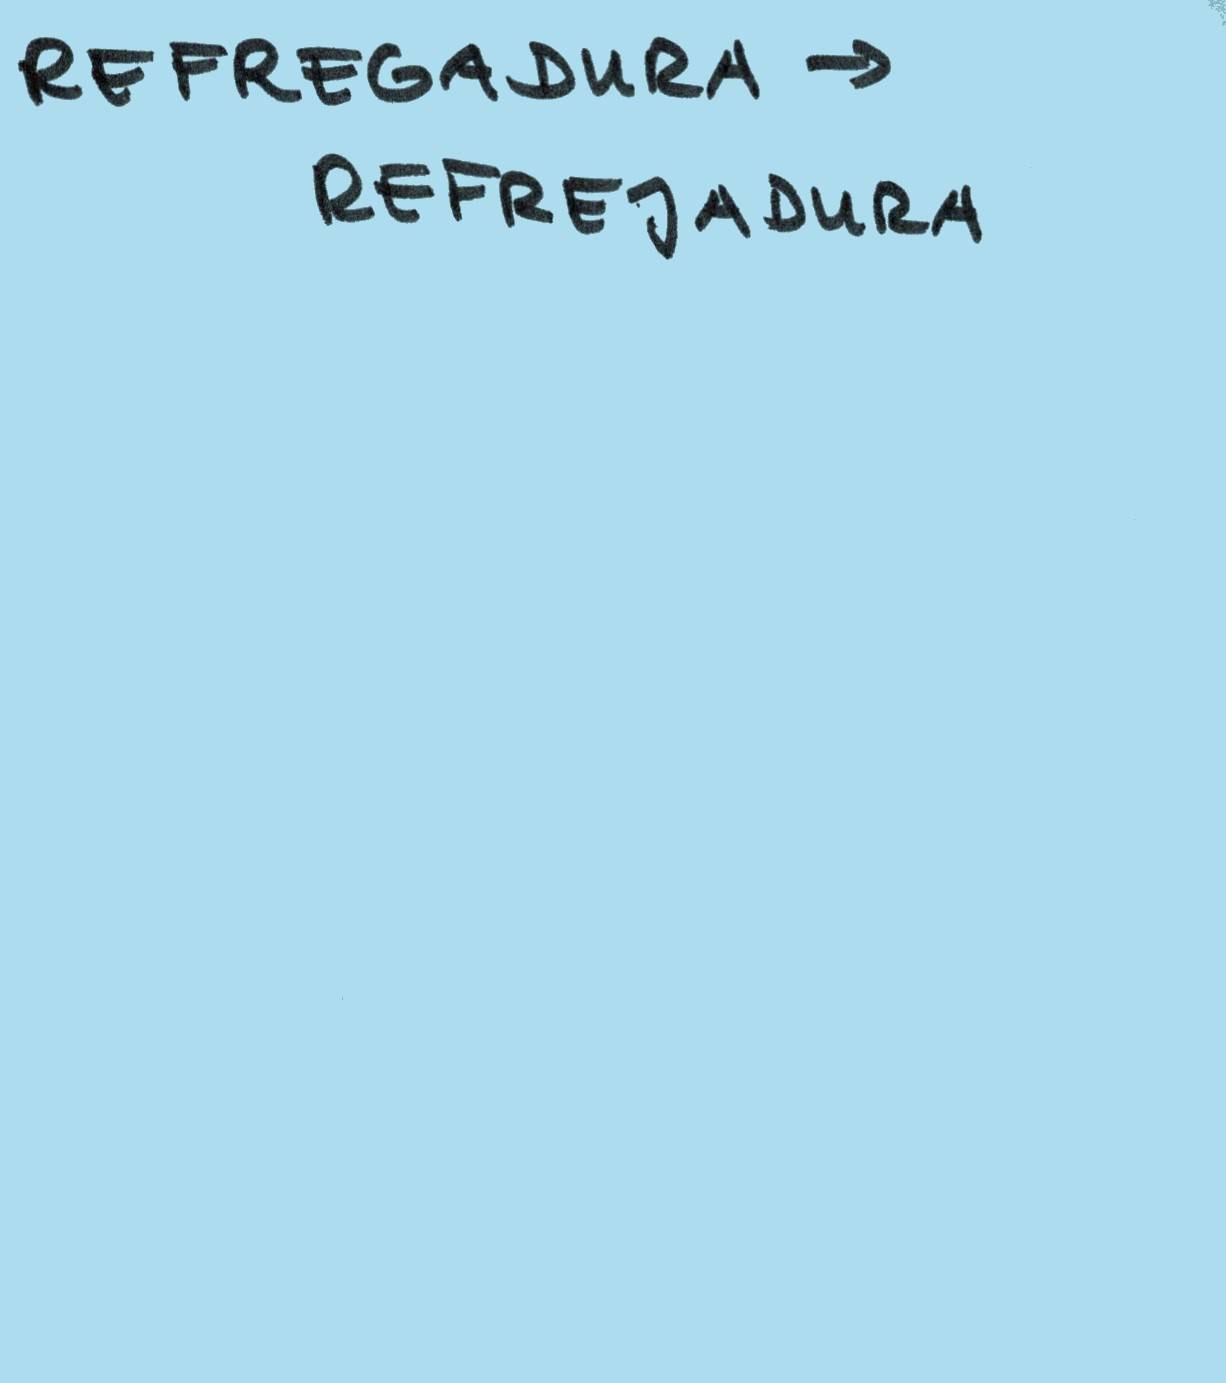 REFREGADURA →
REFREJADURA